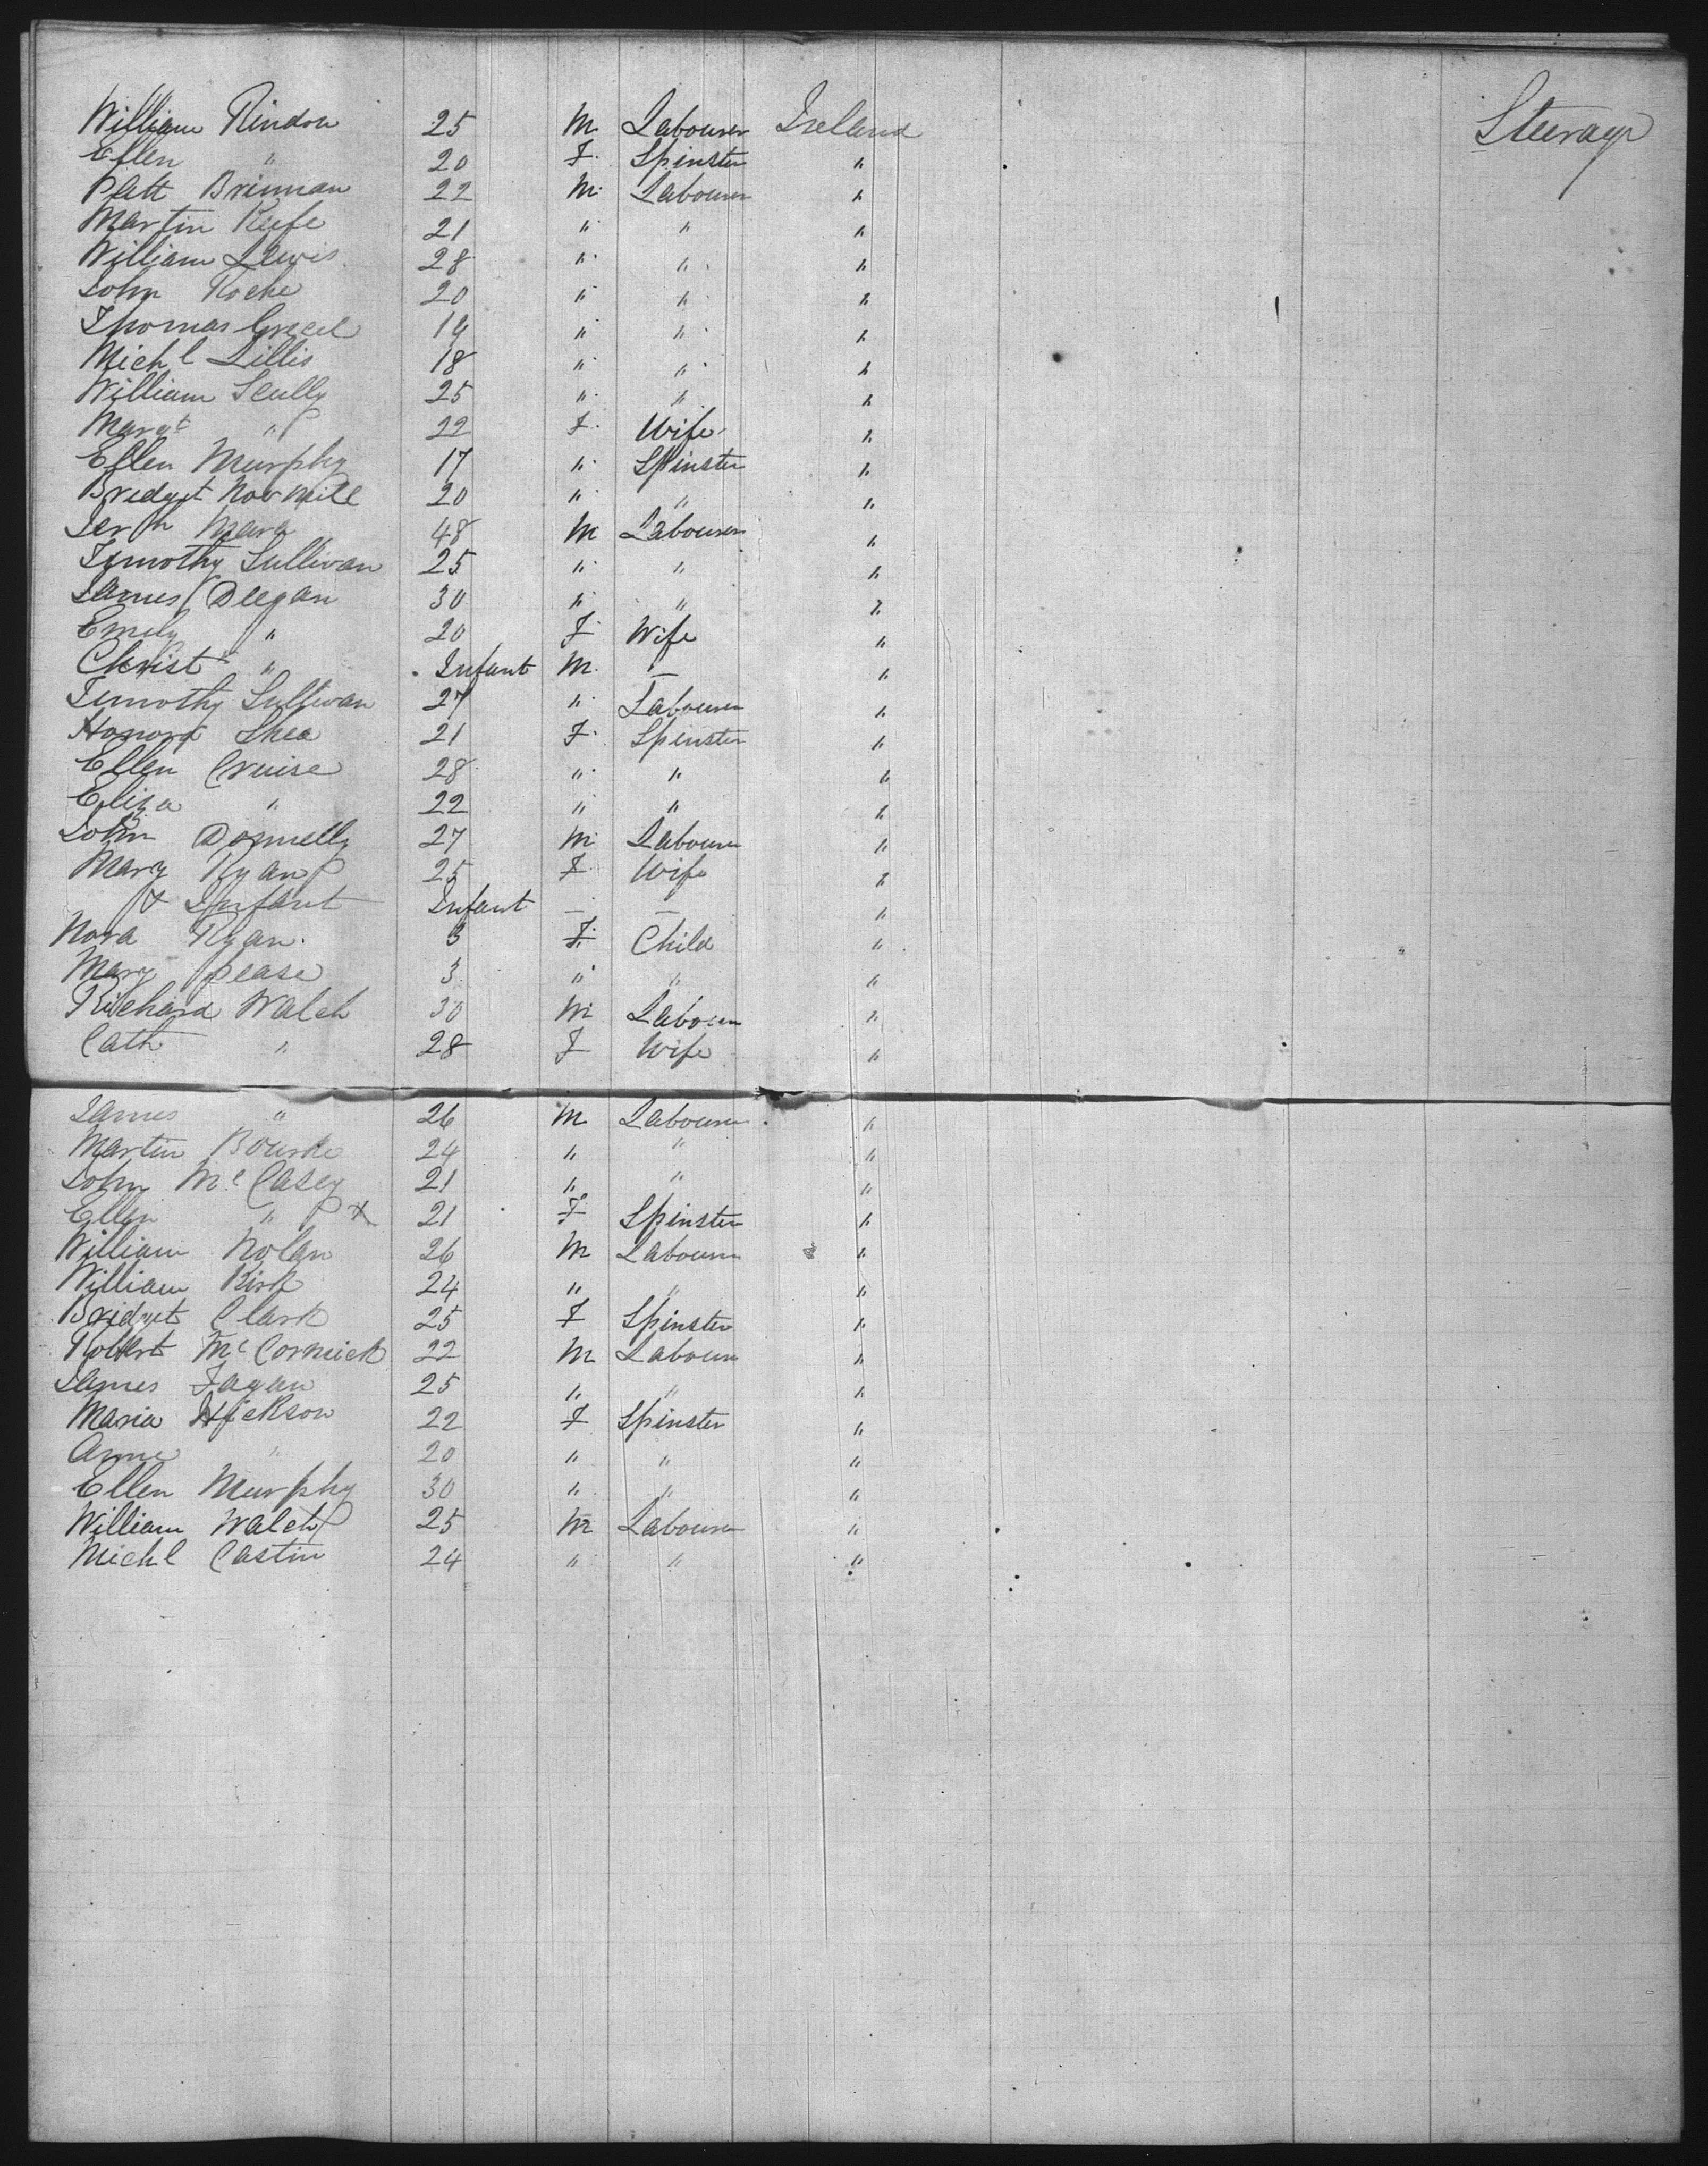 William Rindon 25 M. Labourer Ireland Steerage
Ellen " 20 F. Spinster "
Patt Brinnan 22 M. Labourer "
Martin Keefe 21 " " "
William Lewis 28 " " "
John Roche 20 " " "
Thomas 19 " " "
Michl Lillis 18 " " "
William Scully 25 " " "
Margt " 22 F. Wife "
Ellen Murphy 17 " Spinster "
Bredget Normile 20 " " "
Jerh Mara 48 M Labourer "
Timothy Sullivan 25 " " "
James Deegan 30 " " "
Emily " 20 F Wife "
Christ " Infant M. — "
Timothy Sullivan 27 " Labourer "
Honora Shea 21 F. Spinster "
Ellen Cruise 28 " " "
Eliza " 22 " " "
John Donnelly 27 M. Labourer "
Mary Ryan 25 F Wife "
& Infant Infant — — "
Nora Ryan. 3 F. Child "
Mary Pease 3 " " "
Richard Walch 30 M Labourer "
Cath " 28 F Wife "
James " 26 M Labourer "
Martin Bourke 24 " " "
John Mc Casey 21 " " "
Ellen " X 21 F Spinster "
William Nolan 26 M Labourer "
William Kirk 24 " " "
Bridget Clark 25 F Spinster "
Robert Mc Cormick 22 M Labourer "
James Fagan 25 " " "
Maria Hickson 22 F Spinster "
Anne " 20 " " "
Ellen Murphy 30 " " "
William Walch 25 M Labourer "
Michl Castin 24 " " "